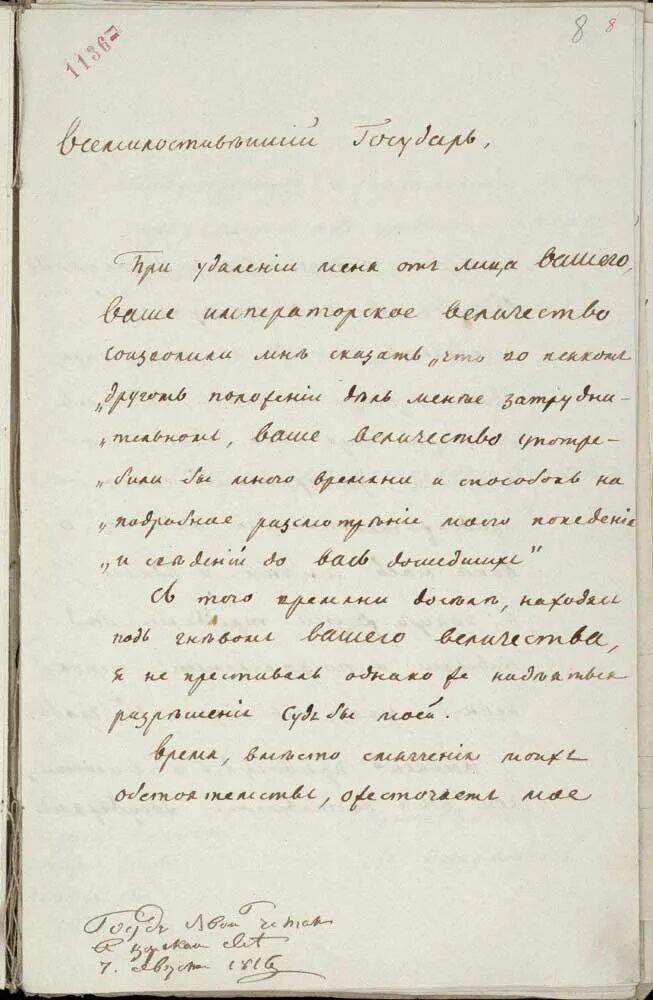 1136
8 8
Всемилостивѣйшій Государь,
При удаленіи меня отъ лица Вашего,
Ваше императорское Величество
соизволили мнѣ сказать „что во всякомъ
„другомъ положеніи дѣлъ менѣе затрудни-
„тельномъ, Ваше Величество употре-
„били бы много времяни и способовъ на
„подробное разсмотрѣніе моего поведенія
„и свѣденій до Васъ дошедшихъ"
Съ того времяни доселѣ, находясь
подъ гнѣвомъ Вашего Величества,
я не преставалъ однако же надѣяться
разрѣшенія судьбы моей.
Время, вмѣсто смягченія моихъ
обстоятельствъ, ожесточаетъ мое
Государь
7. Августа 1816